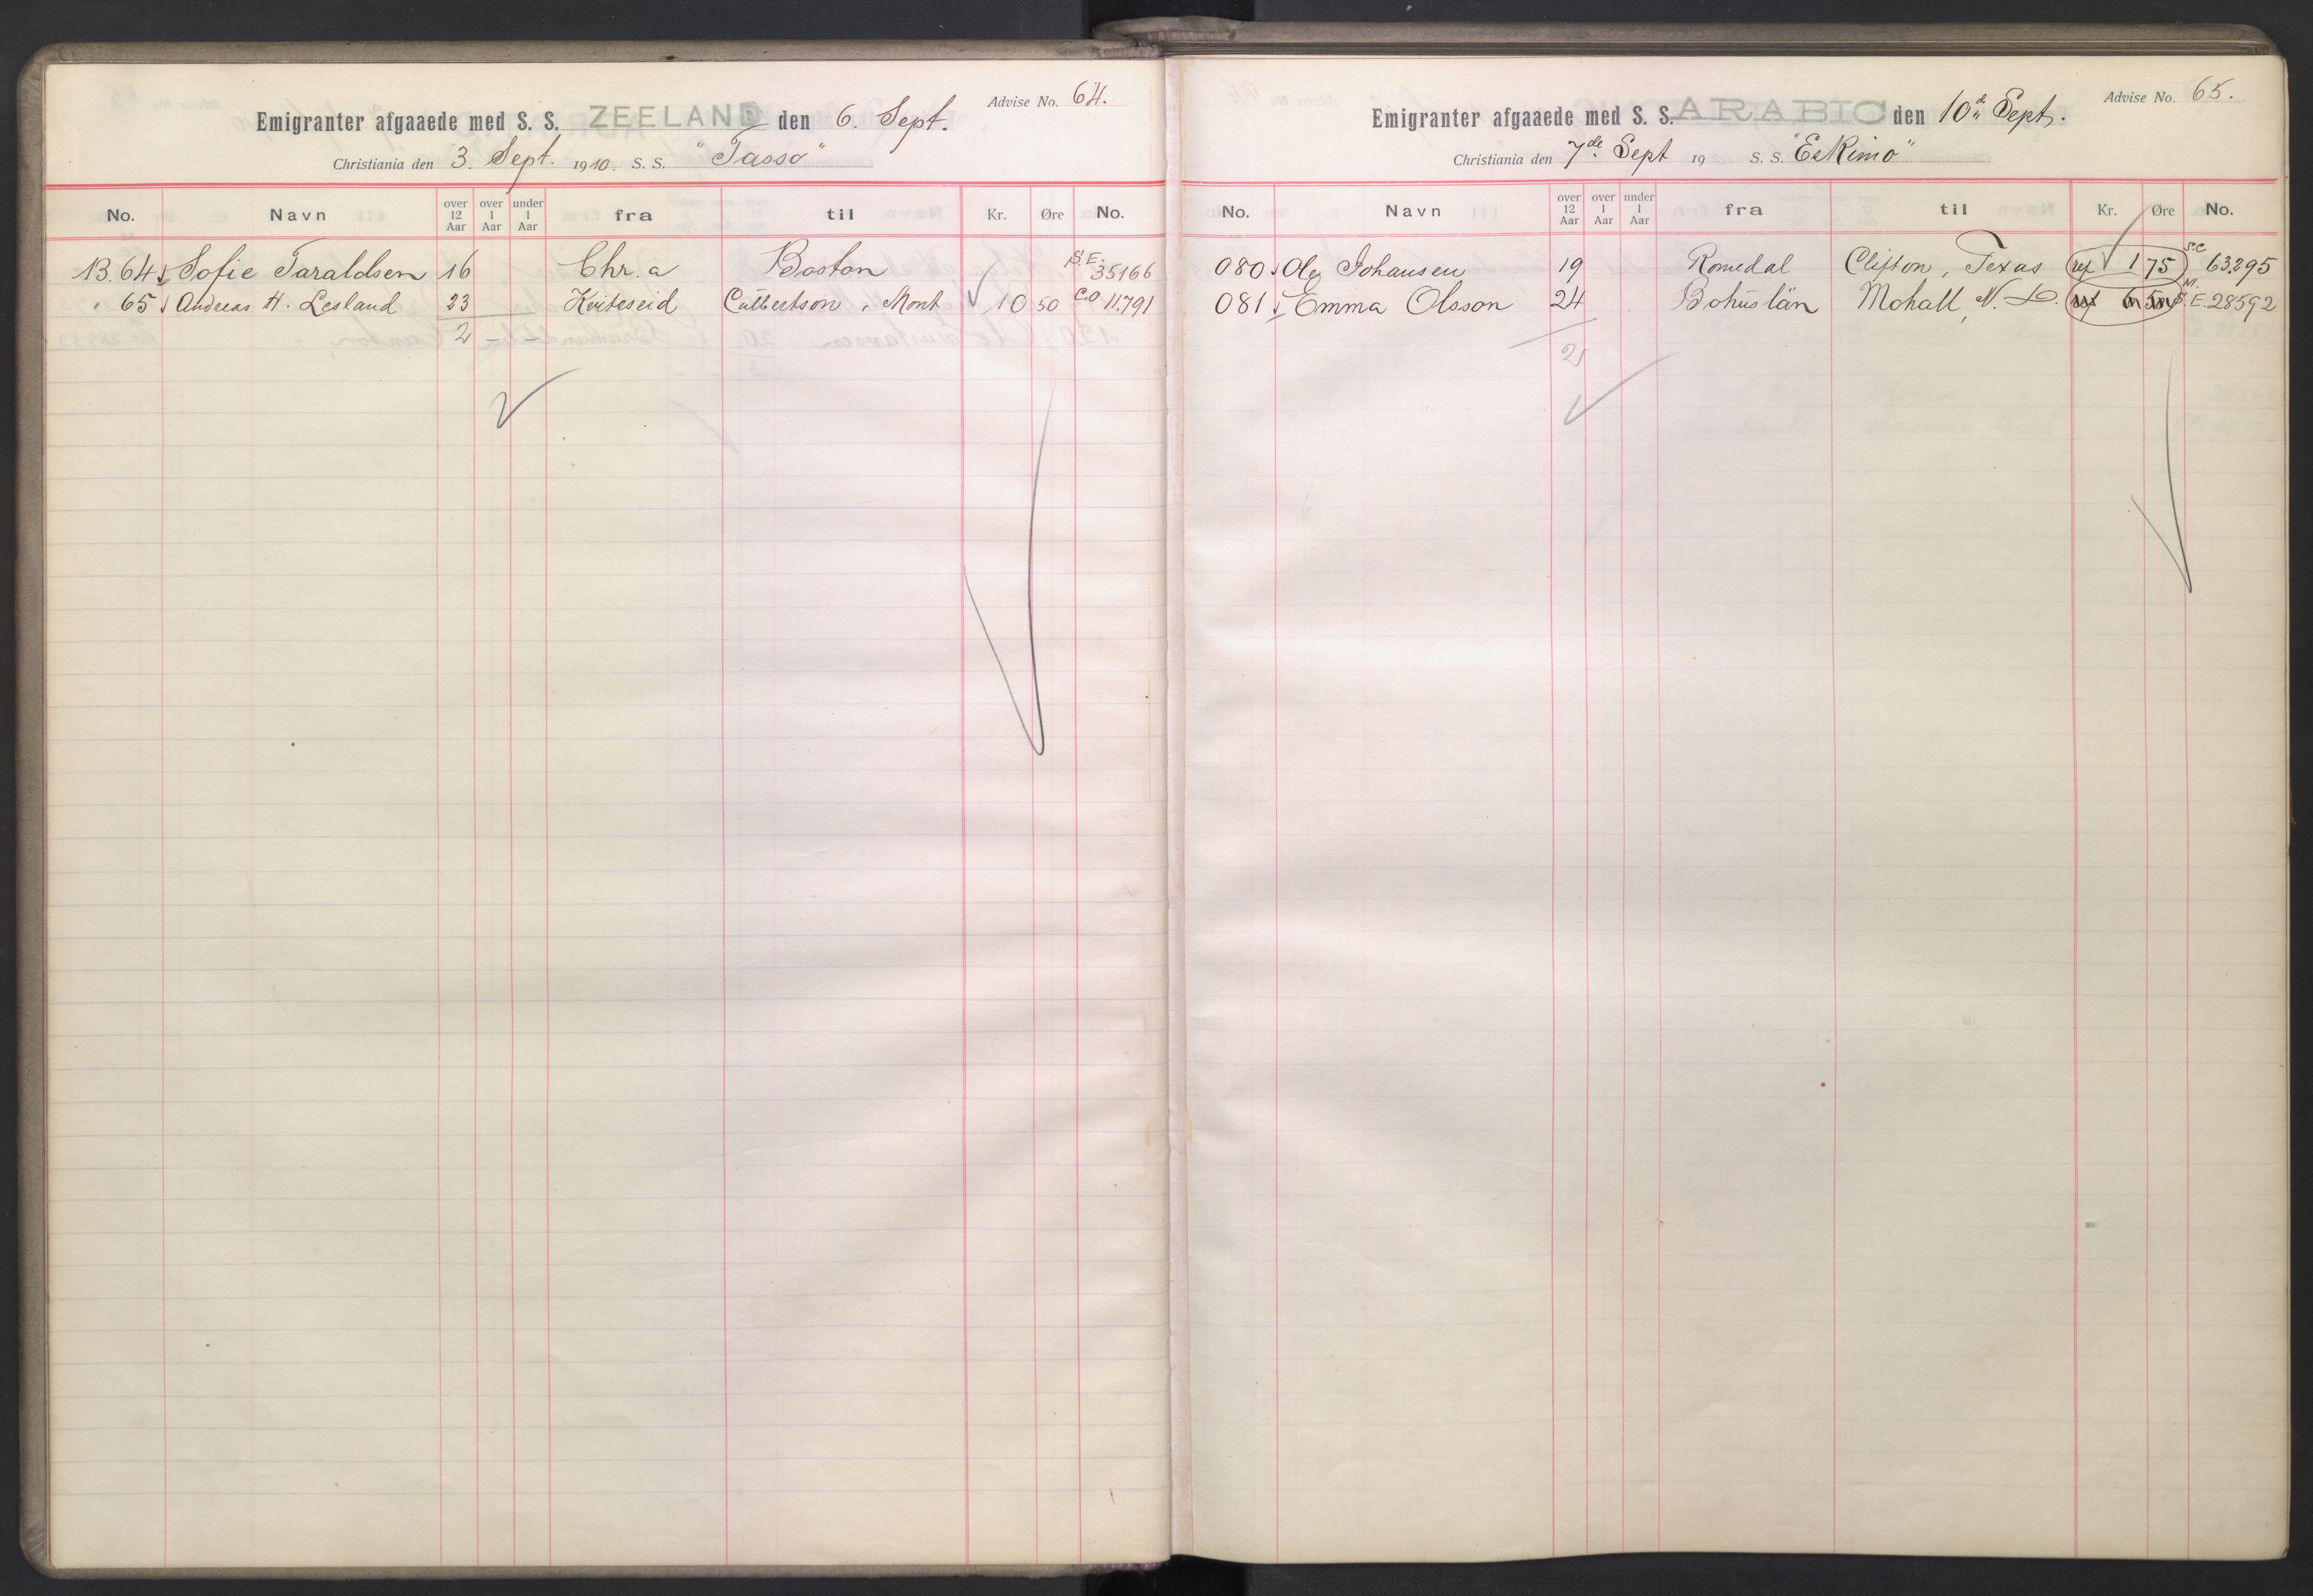 Advise No. 64.
Emigranter afgaaede med S. S. ZEELAND den 6. Sept.
Christiania den 3. Sept. 1910. S. S. "Tasso"
No. Navn over 12 Aar over 1 Aar under 1 Aar fra til Kr. Øre No.
13.64 Sofie Taraldsen 16 Chr.a Boston S.E. 35166
" 65 Andreas H. Lesland 23 Kviteseid Culbertson, Mont 10 50 C.O 11.791
2 - -
Advise No. 65.
Emigranter afgaaede med S. S. ARABIC den 10de Sept.
Christiania den 7de Sept 19 S. S. "Eskimo"
No. Navn over 12 Aar over 1 Aar under 1 Aar fra til Kr. Øre No.
080 Ole Johansen 19 Romedal Clifton, Texas ref 1 75 S.C 63295
081 Emma Olsson 24 Bohuslän Mohall, N. D. M. S.E. 28592
2